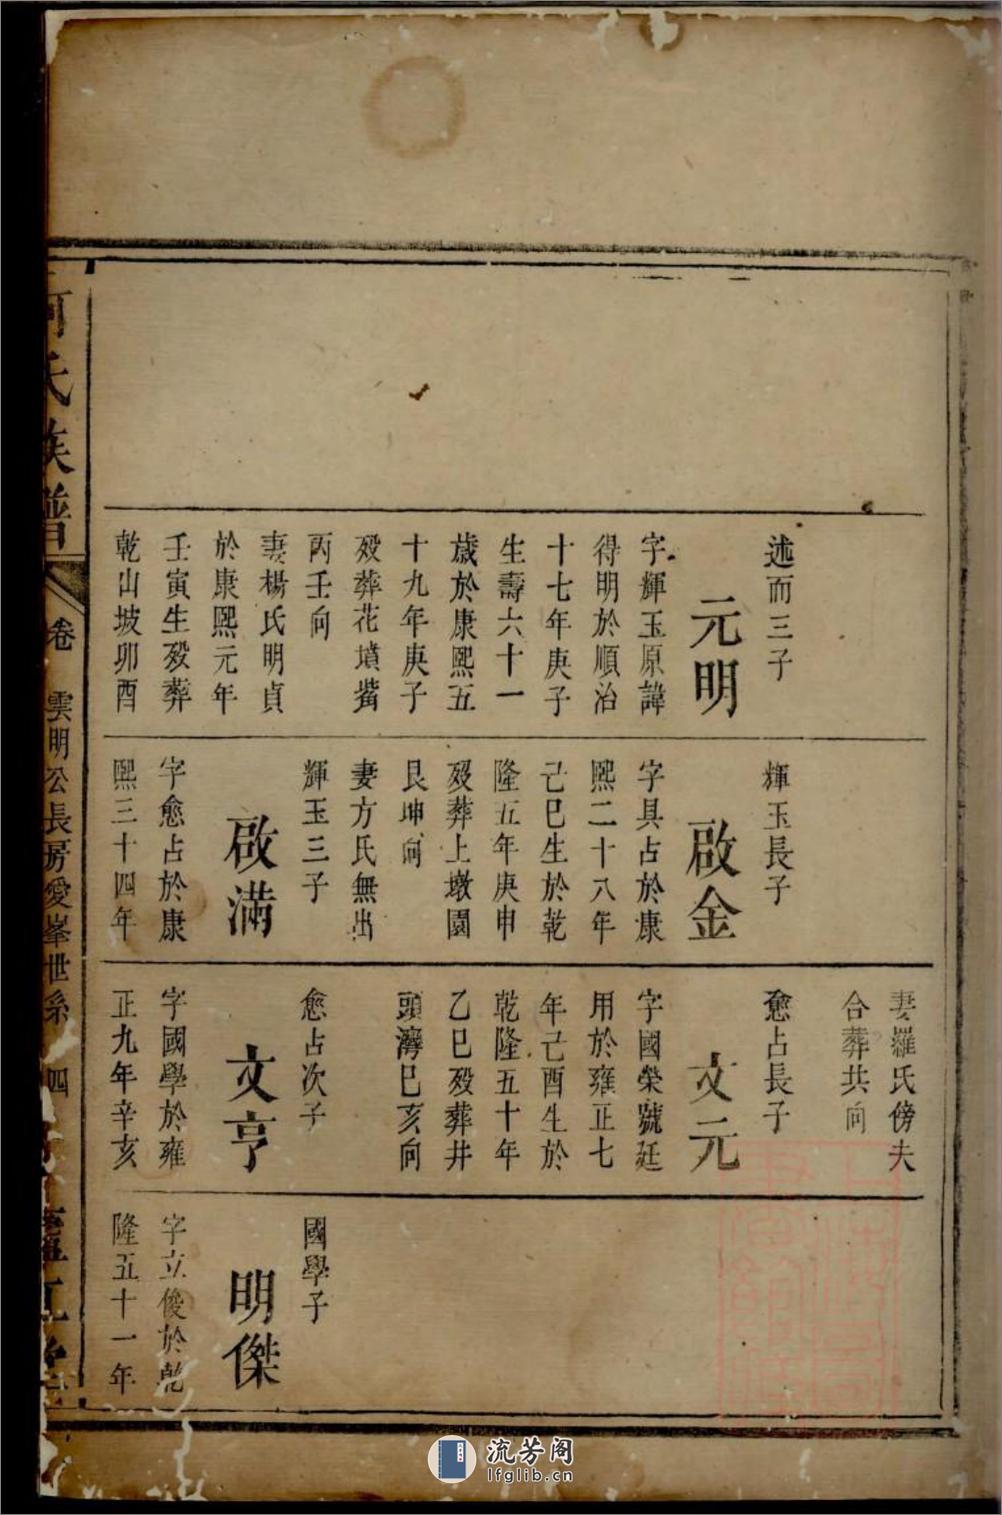 述而三子
元明
字輝玉原諱
得明於順治
十七年庚子
生壽六十一
歲於康熙五
十九年庚子
歿葬花墳觜
丙壬向
妻楊氏明貞
於康熙元年
壬寅生歿葬
乾山坡卯酉
輝玉長子
啟金
字具占於康
熙二十八年
己巳生於乾
隆五年庚申
歿葬上墩園
艮坤向
妻方氏無出
輝玉三子
啟滿
字愈占於康
熙三十四年
妻羅氏傍夫
合葬共向
愈占長子
文元
字國榮號廷
用於雍正七
年己酉生於
乾隆五十年
乙巳歿葬井
頭灣巳亥向
愈占次子
文亨
字國學於雍
正九年辛亥
國學子
明傑
字立俊於乾
隆五十一年
何氏族譜
卷
雲明公長房愛峯世系
四
流芳阁
lfglib.cn